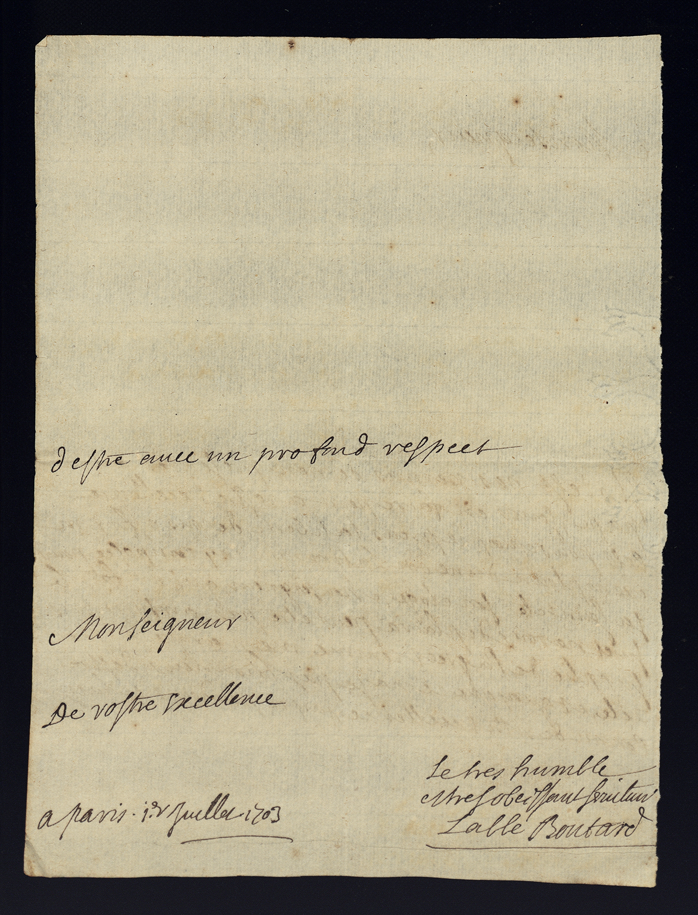 destre avec un profond respect
Monseigneur
De vostre Excellence
Le tres humble
et tres obeissant serviteur
Labbé Boutard
a paris. 1er Juillet 1703